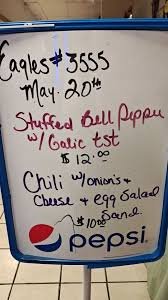 Eagles # 3555
May. 20th
Stuffed Bell Pepper
w/ Galic tst
$ 12.00
Chili w/onion's +
Cheese + egg Salad
Sand.
$10.00
pepsi